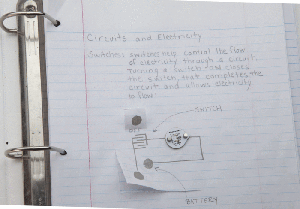 Circuits and Electricity
Switches: switches help control the flow
of electricity through a circuit.
Turning a switch on closes
the switch, that completes the
circuit and allows electricity
to flow
SWITCH
BATTERY